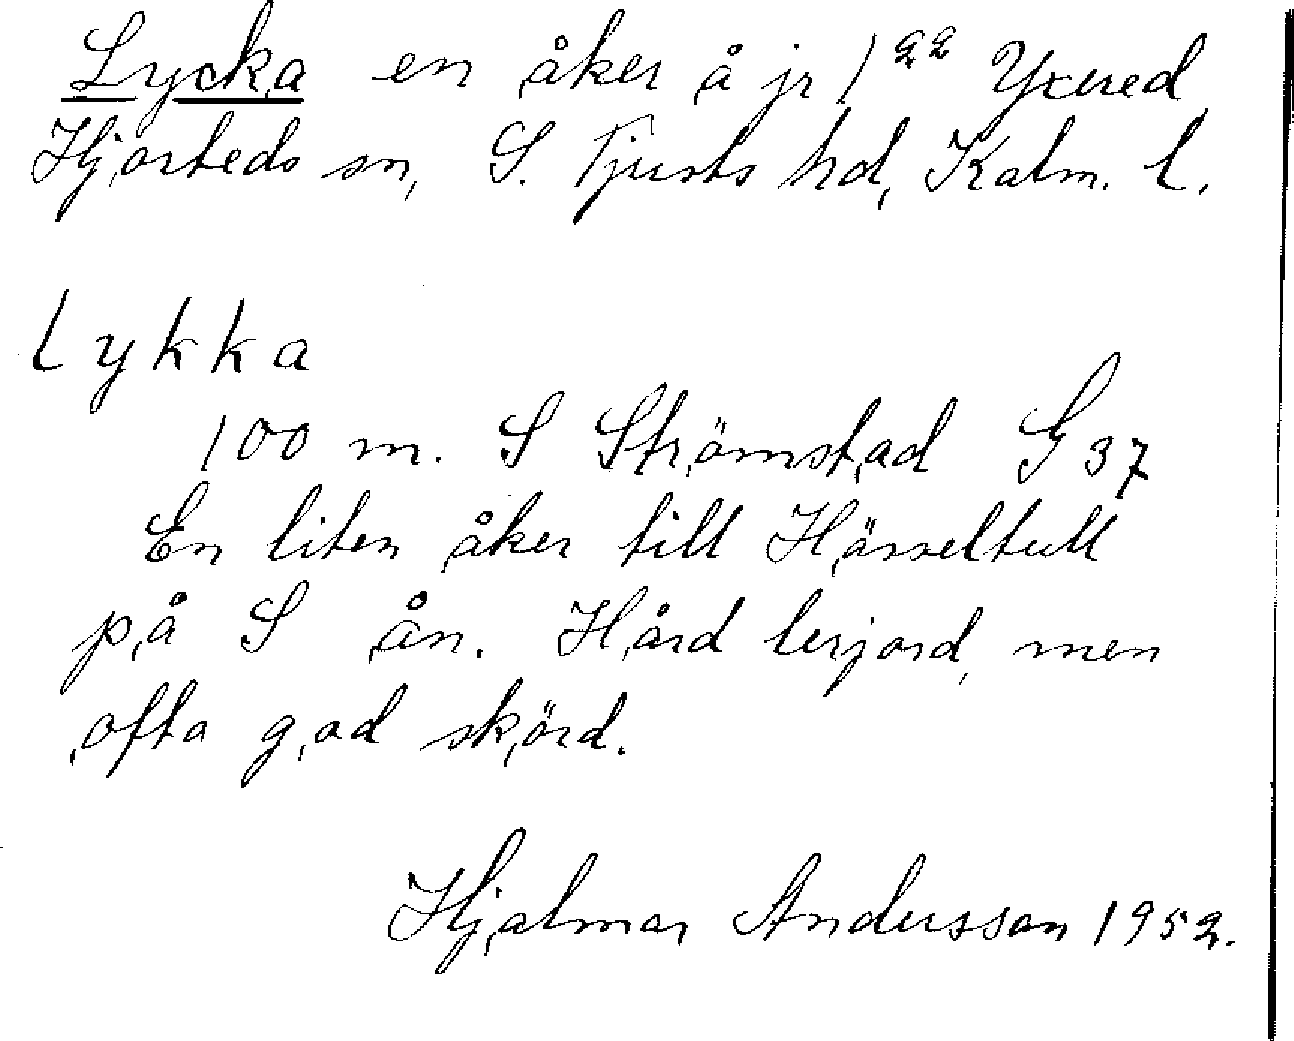 Lycka en åker å jr 1²² Yxered
Hjorteds sn, S. Tjusts hd, Kalm. l.
Lykka
100 m. S Strömstad G 37
En liten åker till Hässeltull
på S ån. Hård lerjord, men
ofta god skörd.
Hjalmar Andersson 1952.